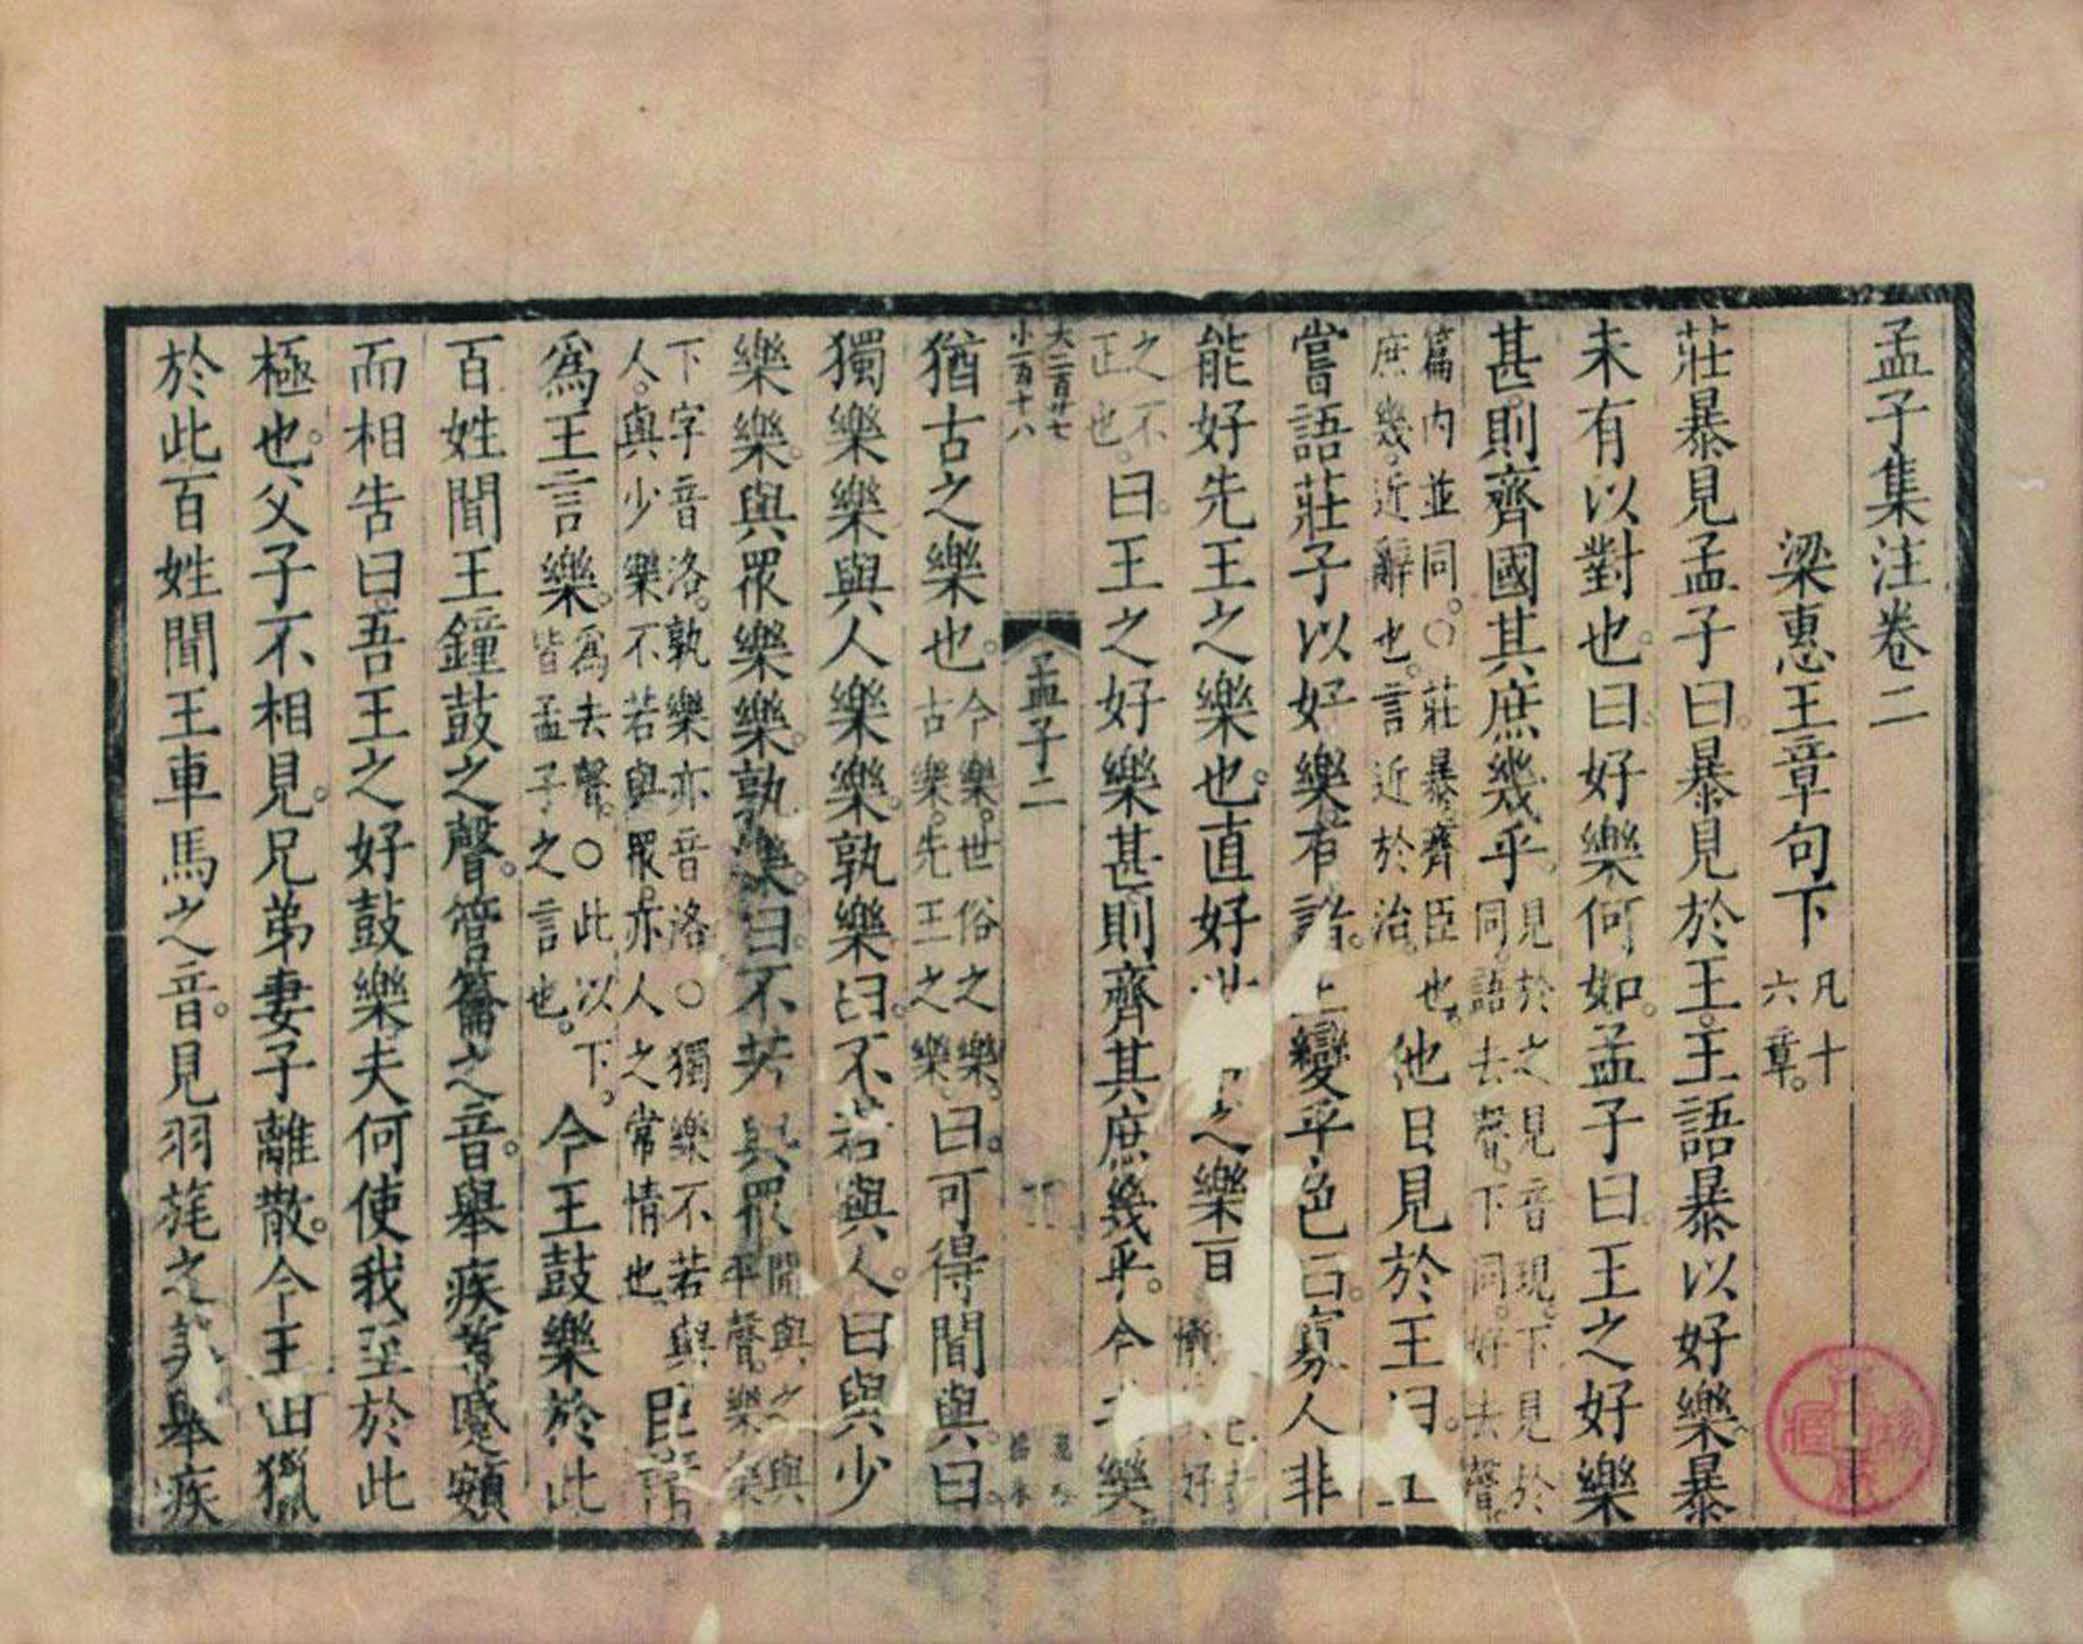 孟子集注卷二
梁惠王章句下凡十六章。
莊暴見孟子曰。暴見於王。王語暴以好樂。暴
未有以對也。曰好樂何如。孟子曰。王之好樂
甚。則齊國其庶幾乎。見於之見音現。下見於同。語去聲。下同。好去聲。
篇內並同。○莊暴。齊臣也。庶幾。近辭也。言近於治。他日見於王曰。王
嘗語莊子以好樂。有諸。王變乎色曰。寡人非
能好先王之樂也。直好世之樂耳。好
之不正也。曰。王之好樂甚。則齊其庶幾乎。今之樂
大二百廿七
小一百十八
孟子二
猶古之樂也。今樂。世俗之樂。古樂。先王之樂。曰。可得聞與。曰。
獨樂樂。與人樂樂。孰樂。曰。不若與人。曰與少
樂樂。與眾樂樂。孰樂。曰。不若與眾。聞與之與平聲。樂樂
下字音洛。孰樂亦音洛。○獨樂不若與人。與少樂不若與眾。亦人之常情也臣請
爲王言樂。爲去聲。○此以下。皆孟子之言也。今王鼓樂於此
百姓聞王鐘鼓之聲。管籥之音。舉疾首蹙頞
而相告曰。吾王之好鼓樂。夫何使我至於此
極也。父子不相見。兄弟妻子離散。今王田獵
於此百姓聞王車馬之音。見羽旄之美舉疾